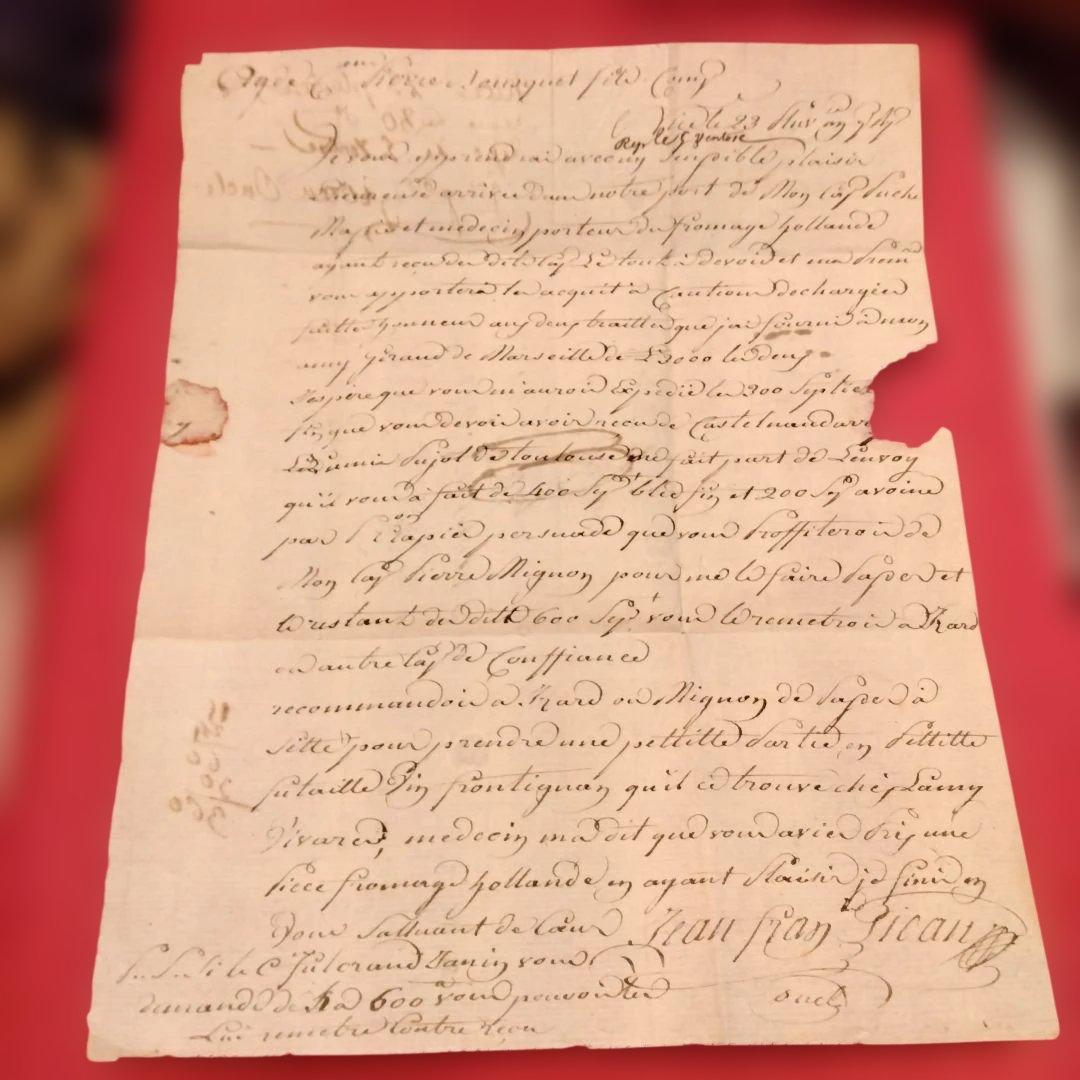 Agde C.en Pierre Bousquet fils Comp
Nice le 23 Pluv an 7
Rep le 5 Ventose
Je vous apprendrai avec un senssible plaisir
l'heureuse arrivée dans notre port de Mon Cap Puche
Rapie et medecin porteur du fromage hollande
ayant reçu des dits Cap Le tout à devoir et ma
vous apportera les acquit à Cautions dechargées
faitte honneur aux deux traittes que j'ai fourni à mon
amy Giraud de Marseille de L 3000 les deux
J'espere que vous m'auroie Expedié les 300 Septies
fin que vous devoie avoir reçu de Castelnaudary
L'ami Pujol de toulouse me fait part de L'envoy
qu'il vous a fait de 400 Sep.t bled fin et 200 Sep avoine
par persuadé que vous Proffiteroie de
Mon Cap Pierre Mignon pour me le faire Passer et
le restant des dits 600 Sep.t vous le remetroie à Izard
ou autre Cap de Conffiance
recommandoie a Izard ou Mignon de Passer à
Sette pour prendre une pettitte Partie en Pettitte
futaille Vin frontignan qu'il ce trouve chés Lamy
Vivarés, medecin m'a dit que vous aviés Pris une
Piece fromage hollande en ayant Plaisir je finis en
Vous Salluant de Cœur Jean fran Picau
P.S. Si le C. Fulcrand Janin vous
demande de 600 vous pouvoie les
oncle
Lui remetre Contre reçu